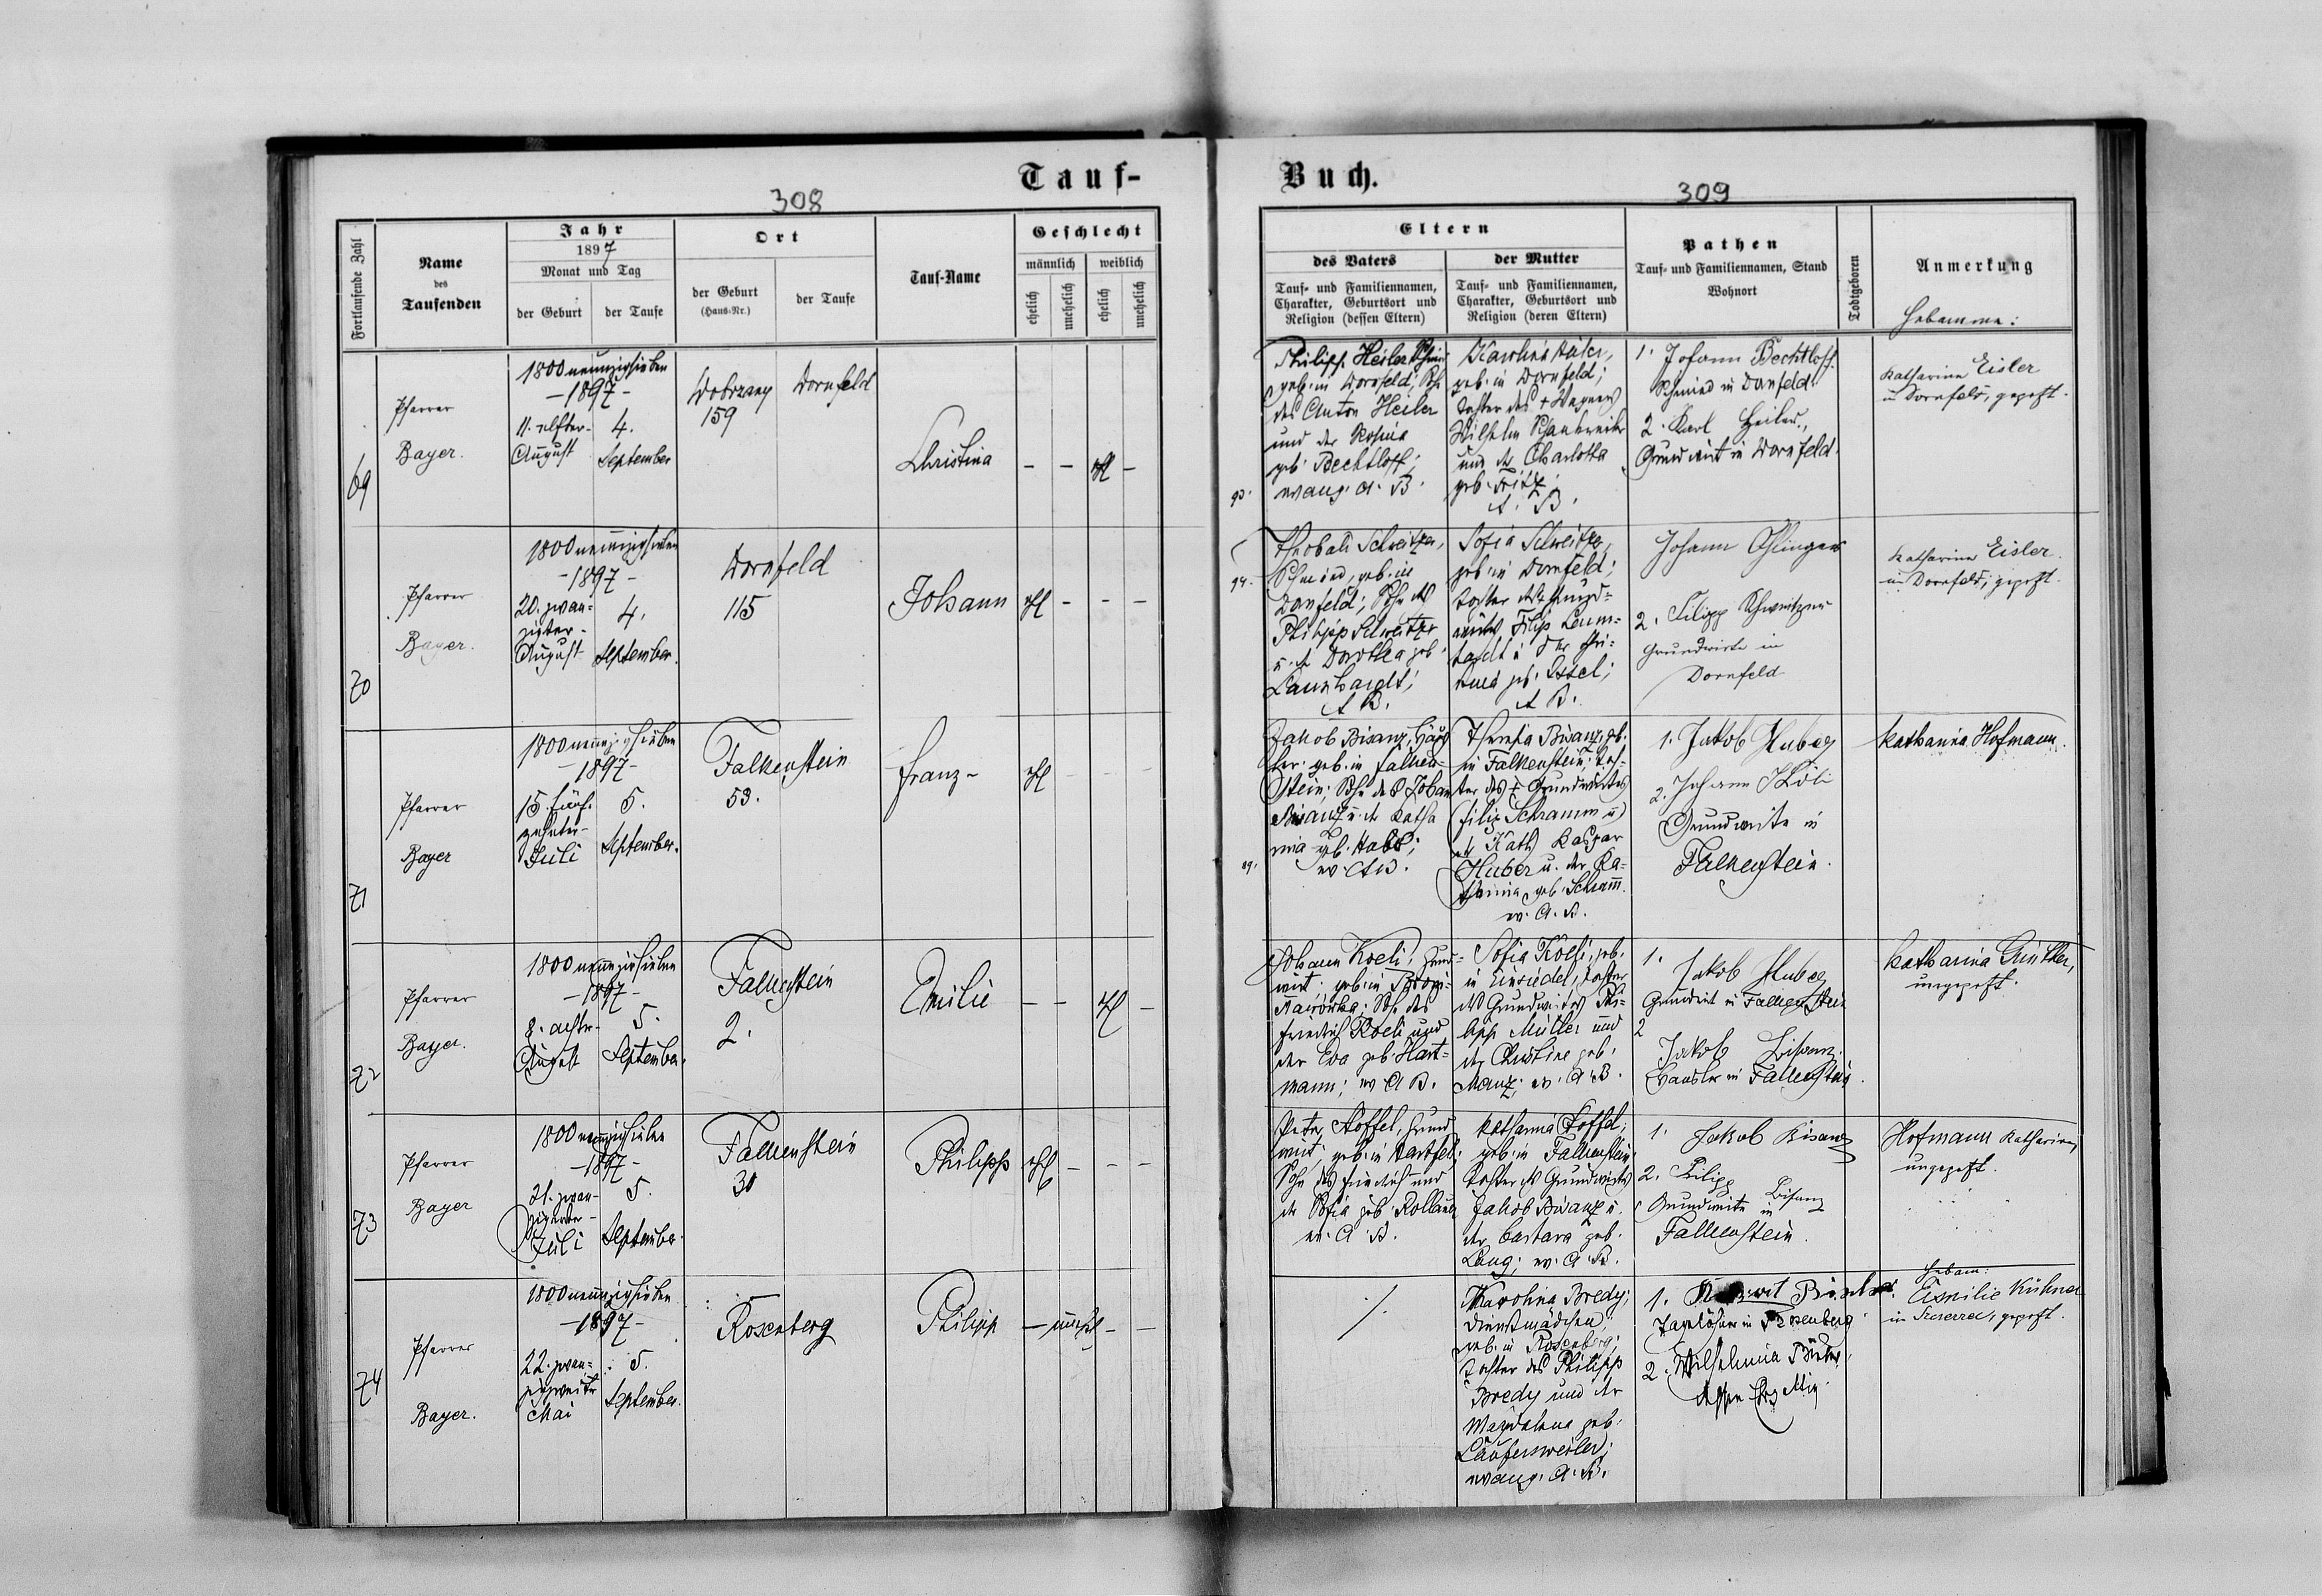 Tauf-
Buch.
308
309
Fortlaufende Zahl
Name
des
Taufenden
Jahr
1897
Monat und Tag
der Geburt
der Taufe
Ort
der Geburt
(Haus-Nr.)
der Taufe
Tauf-Name
Geschlecht
männlich
weiblich
ehelich
unehelich
ehelich
unehelich
Eltern
des Vaters
Tauf- und Familiennamen,
Charakter, Geburtsort und
Religion (dessen Eltern)
der Mutter
Tauf- und Familiennamen,
Charakter, Geburtsort und
Religion (deren Eltern)
Pathen
Tauf- und Familiennamen, Stand
Wohnort
Todtgeboren
Anmerkung
Hebamme:
69
Pfarrer
Bayer.
1800neunzigsieben
-1897-
11. elfter
August
4.
September
159
Dornfeld
Christina
- - ehl -
Philipp Heiler
geb. in Dornfeld; Sohn
des Anton Heiler
und der Rosina
geb. Bechtloff;
evang. A. B.
geb. in Dornfeld;
Tochter des + Wagners
Wilhelm
und der Charlotta
geb. Fritz;
A. B.
1. Johann Bechtloff
Schmied in Dornfeld.
2. Karl Heiler,
Grundwirt in Dornfeld.
Katharina Eisler
in Dornfeld, geprft.
70
Pfarrer
Bayer.
1800neunzigsieben
-1897-
20. zwan-
zigster
August
4.
September.
Dornfeld
115
Johann
ehl - - -
Theobald Schweitzer,
Schmied, geb. in
Dornfeld; Sohn des
Philipp Schweitzer
u. der Dorothea geb.
Lanzhardt;
A. B.
Sofia Schweitzer,
geb. in Dornfeld;
Tochter des Grund-
wirts Filip
geb. Issel;
A. B.
Johann
2. Filipp Schweitzer
Grundwirte in
Dornfeld
Katharina Eisler
in Dornfeld, geprft.
71
Pfarrer
Bayer
1800neunzigsieben
-1897-
15. fünf-
zehnter
Juli
5.
September.
Falkenstein
53.
Franz
ehl - - -
Jakob Bisanz, Häus-
ler geb. in Falken-
stein; Sohn des Johann
Bisanz u. der Katha
rina geb.
ev. A. B.
Theresia Bisanz, geb.
in Falkenstein; Toch-
ter des + Grundwirtes
(Filip Schramm u)
Kaspar
Huber u. der Ka-
tharina geb. Schramm.
ev. A. B.
1. Jakob Huber
2. Johann Köli
Grundwirte in
Falkenstein.
Katharina Hofmann.
72
Pfarrer
Bayer.
1800neunzigsieben
-1897-
8. achter
August
5.
September.
Falkenstein
2.
Emilie
- - ehl -
Johann Koeli, Grund-
wirt geb. in
Sohn des
Friedrich Koeli und
der Eva geb. Hart-
mann; ev. A. B.
Sofia Koeli, geb.
in Einsiedel; Tochter
des Grundwirtes Phi-
lipp Müller und
der Christine geb.
Manz; ev. A. B.
1.
Jakob Huber
Grundwirt in Falkenstein
2
Jakob Bisanz
Häusler in Falkenstein.
Katharina Günther,
ungeprft.
73
Pfarrer
Bayer
1800neunzigsieben
-1897-
21. zwan-
zigerster
Juli
5.
September.
Falkenstein
30
Philipp
ehl - - -
Peter Stoffel, Grund
wirt, geb. in Hartfeld;
Sohn des Friedrich und
der Sofia geb.
ev. A. B.
Katharina Stoffel,
geb. in Falkenstein;
Tochter des Grundwirts
Jakob Bisanz u.
der Barbara geb.
Lang; ev. A. B.
1. Jakob Bisanz
2. Filipp Bisanz
Grundwirte in
Falkenstein.
Hofmann Katharina,
ungeprft.
74
Pfarrer
Bayer.
1800neunzigsieben
-1897-
22. zwan-
zigzweiter
Mai
5.
September.
Rosenberg
Philipp
- unehl - -
Karolina Bredy;
Dienstmädchen;
geb. in Rosenberg;
Tochter des Philipp
Bredy und der
Magdalena geb.
Läufersweiler;
evang. A. B.
1.
Tagelöhner in Rosenberg
2. Wilhelmina
Hebam:
Emilie Kühner
geprft.